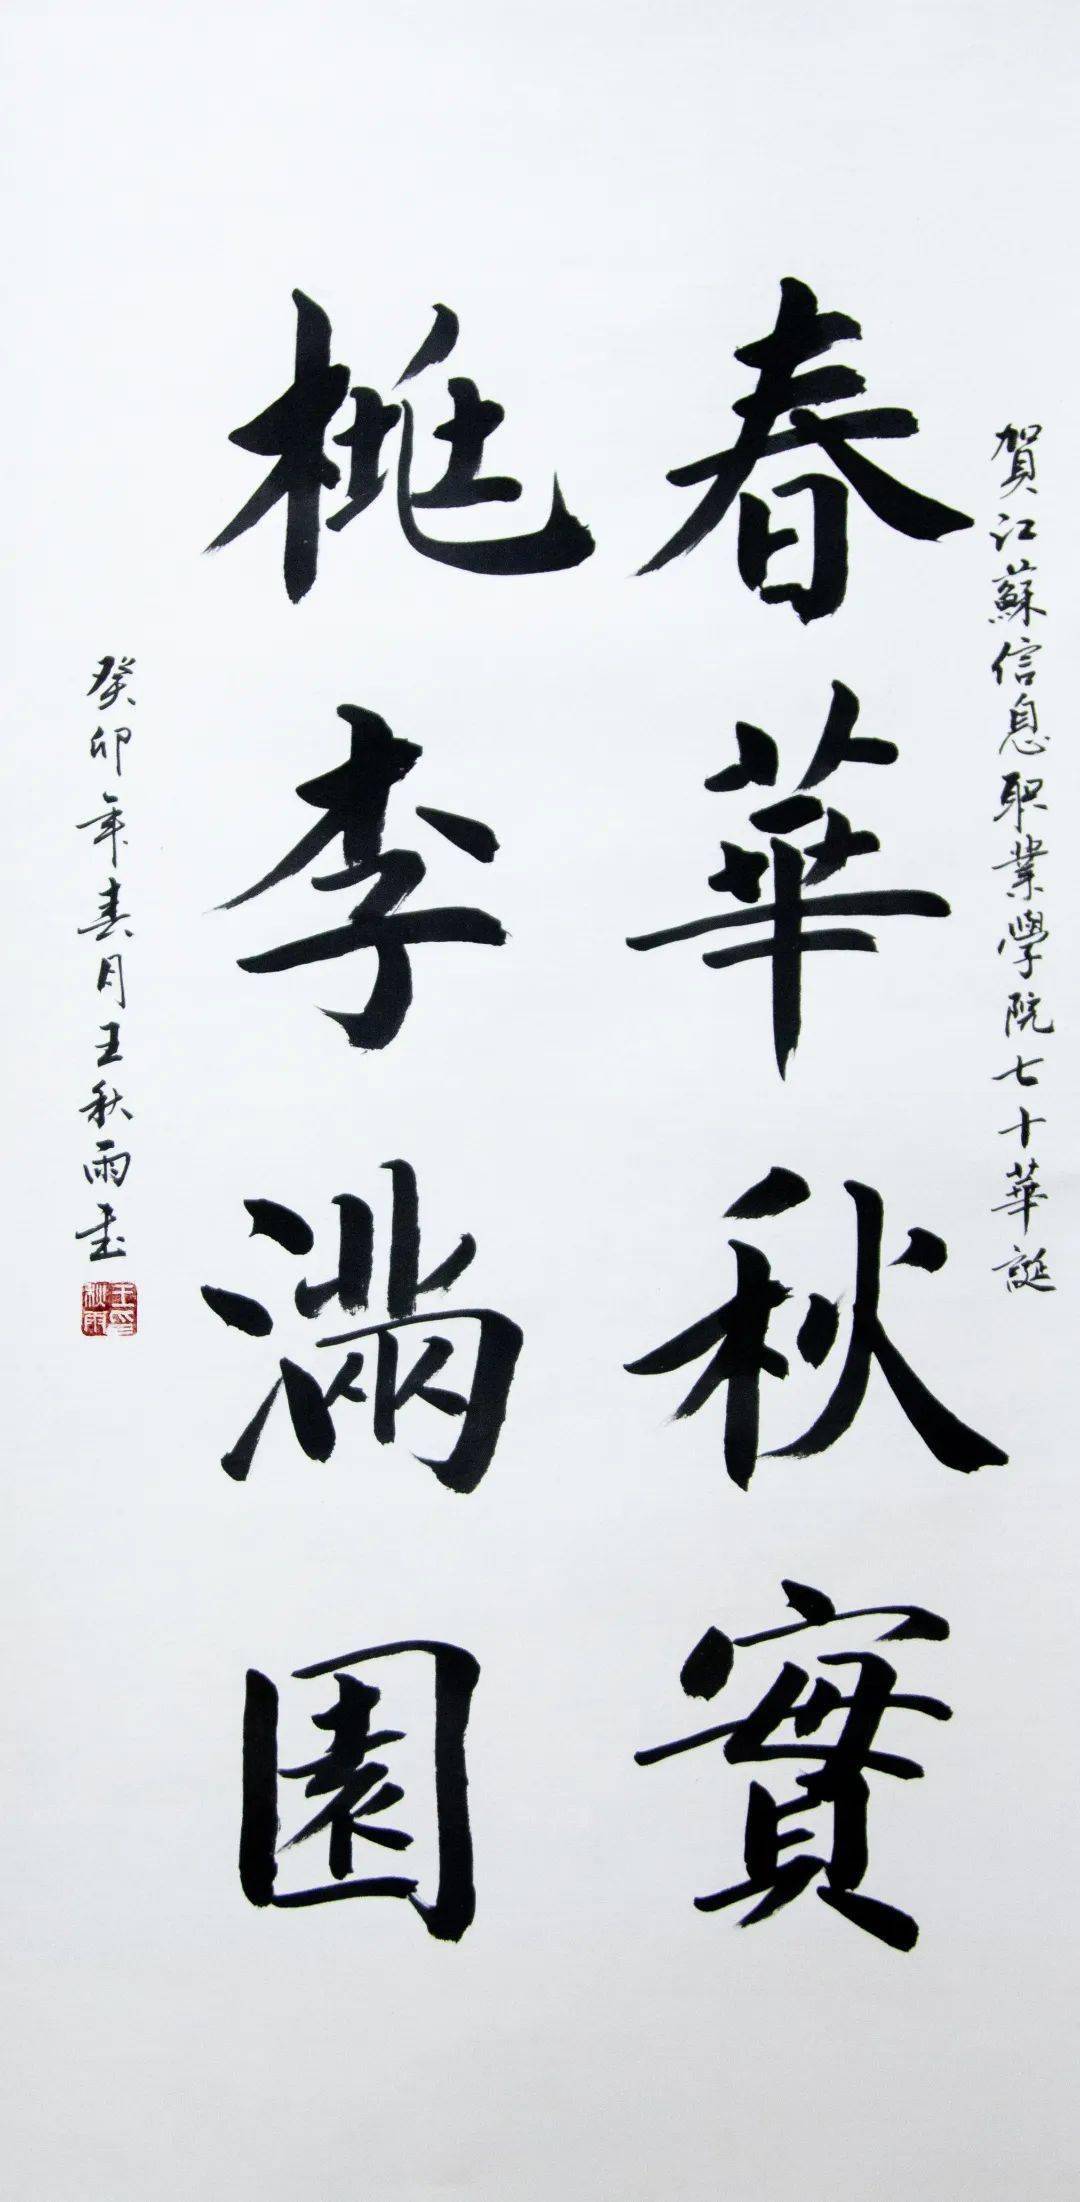 賀江蘇信息职業學院七十華誕
春華秋實
桃李满園
癸卯年春月王秋雨书
王秋雨印